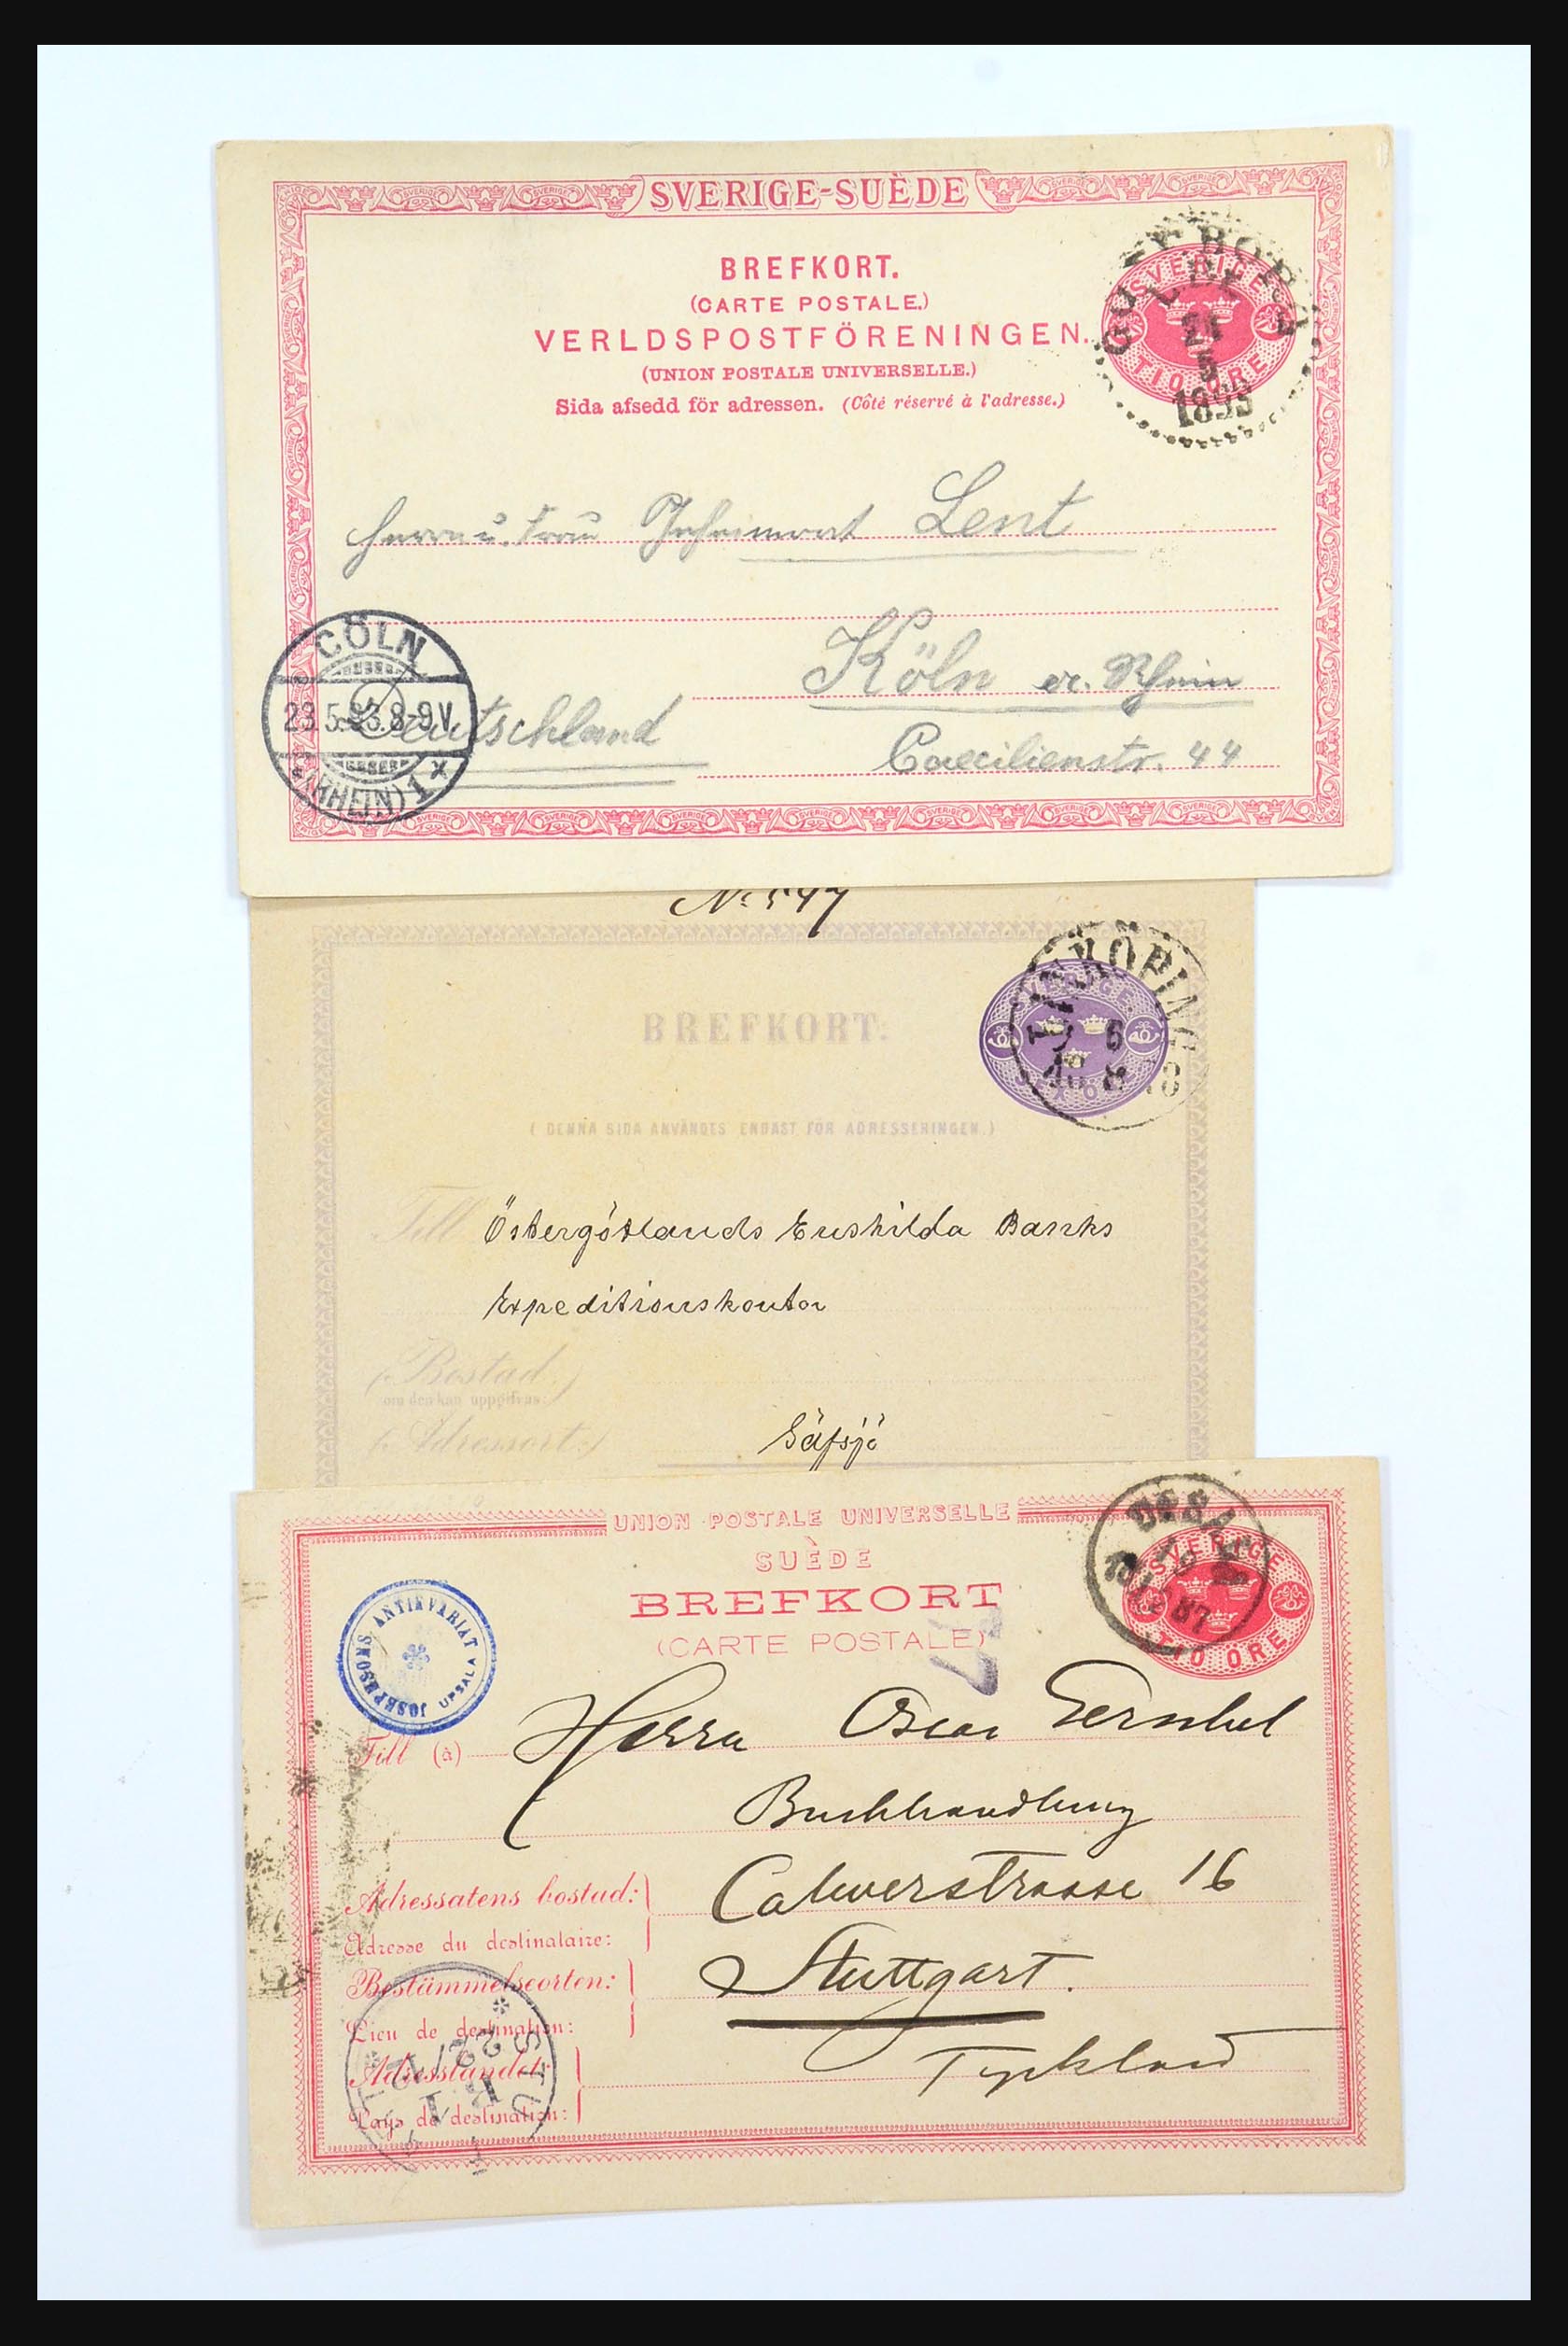 SVERIGE-SUÈDE
BREFKORT.
(CARTE POSTALE.)
VERLDSPOSTFÖRENINGEN.
(UNION POSTALE UNIVERSELLE.)
Sida afsedd för adressen. (Côté réservé à l'adresse.)
SVERIGE
TIO ÖRE
GÖTEBORG
21
5
1893
Herrn u. Frau Geheimrat Lent
Köln a. Rhein
Deutschland
Caecilienstr. 44
CÖLN
23.5.93.8-9V.
(RHEIN) 1
No 547
BREFKORT.
SVERIGE
SEX ÖRE
LINKÖPING
6
(DENNA SIDA ANVÄNDES ENDAST FÖR ADRESSERINGEN.)
Till Östergötlands Enskilda Banks
Expeditionskontor
(Bostad:)
om den kan uppgifvas:
(Adressort:)
Säfsjö
UNION POSTALE UNIVERSELLE
SUÈDE
BREFKORT
(CARTE POSTALE)
SVERIGE
TIO ÖRE
87
JOSEPHSONS ANTIKVARIAT UPSALA
Till (à) Herrn Oscar Gerschel
Buchhandlung
Adressatens bostad: Calwerstrasse 16
Adresse du destinataire:
Bestämmelseorten: Stuttgart.
Lieu de destination:
Adresslandet: Tyskland
Pays de destination: